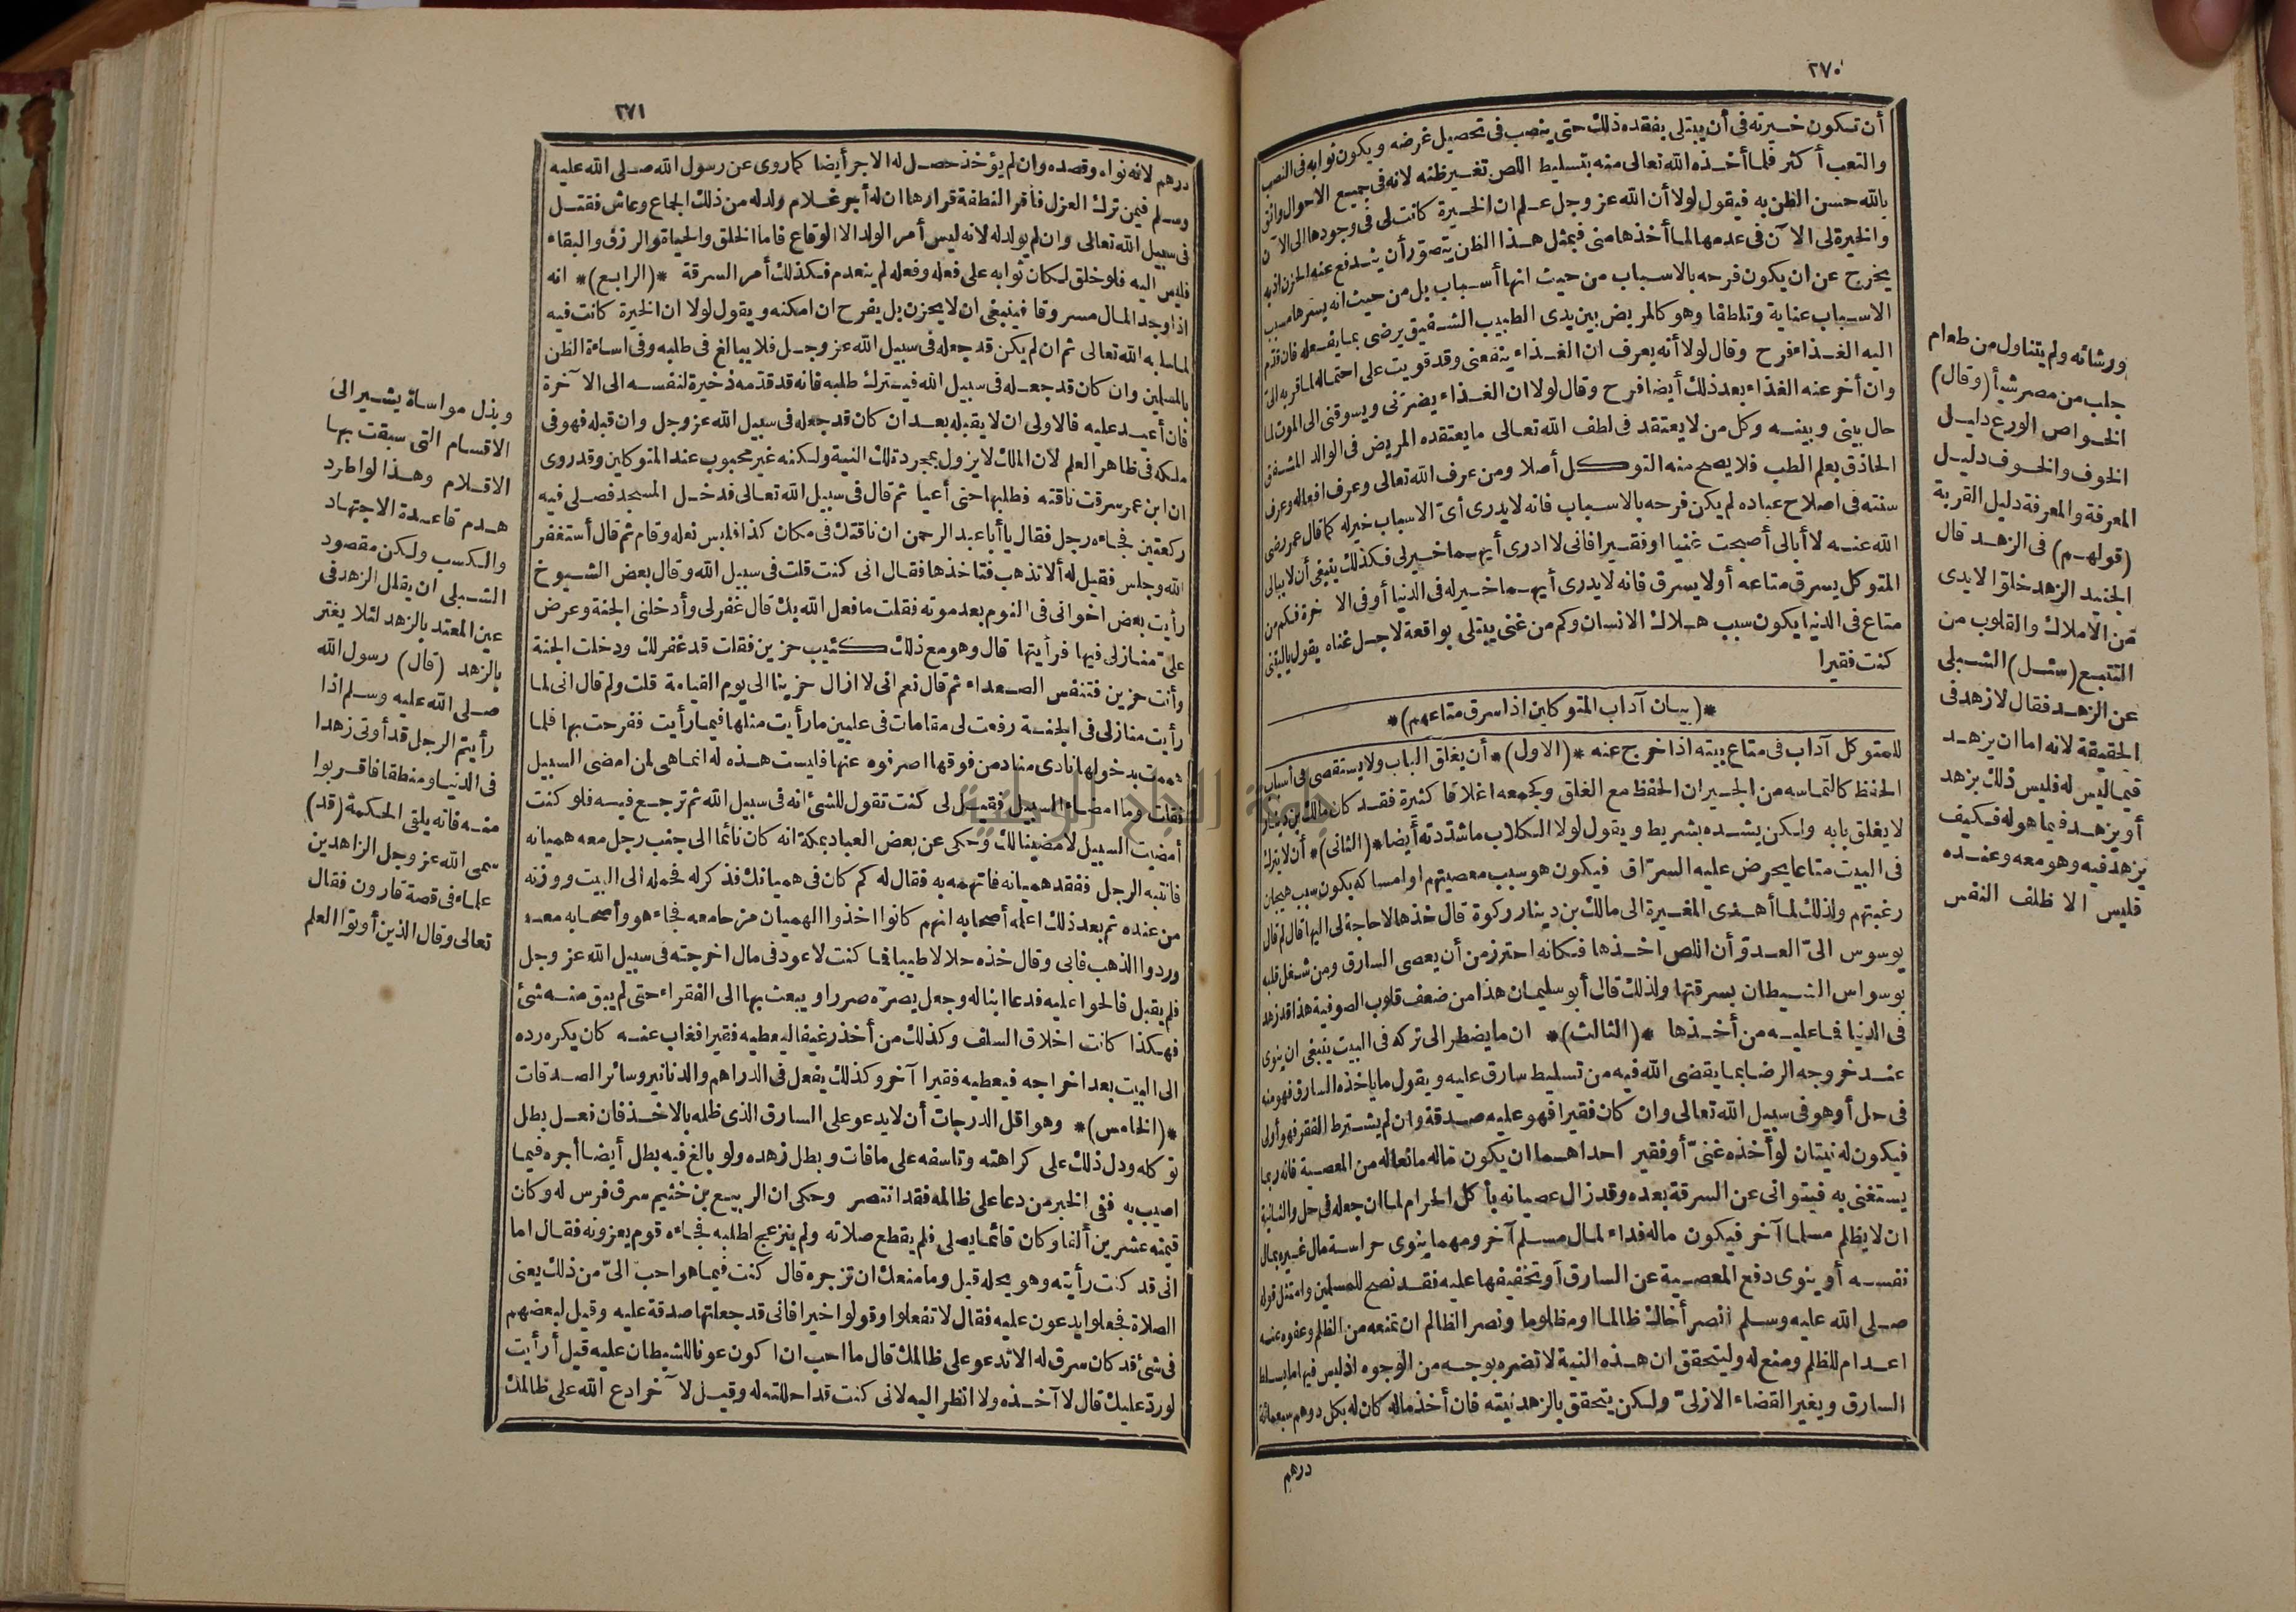 ٢٧٠
أن تكون خيرته في أن يبتلى بفقد ذلك حتى ينصب في تحصيل غرضه ويكون ثوابه في النصب
والتعب أكثر فلما أخذه الله تعالى منه بتسليط اللص تغير ظنه لانه في جميع الاحوال واثق
بالله حسن الظن به فيقول لولا أن الله عز وجل علم ان الخيرة كانت لى في وجودها الى الآن
والخيرة لى الآن في عدمها لما أخذها منى فبمثل هذا الظن يتصور أن يندفع عنه الحزن اذ به
يخرج عن ان يكون فرحه بالاسباب من حيث انها أسباب بل من حيث انه يسرها مسبب
الاسباب عناية وتلطفا وهو كالمريض بين يدى الطبيب الشفيق يرضى بما يفعله فان قدم
اليه الغذاء فرح وقال لولا أنه يعرف ان الغذاء ينفعنى وقد قويت على احتماله لما قربه الىّ
وان أخر عنه الغذاء بعد ذلك أيضا فرح وقال لولا ان الغذاء يضرنى ويسوقنى الى الموت لما
حال بينى وبينه وكل من لا يعتقد في لطف الله تعالى ما يعتقده المريض في الوالد المشفق
الحاذق بعلم الطب فلا يصح منه التوكل أصلا ومن عرف الله تعالى وعرف افعاله وعرف
سنته في اصلاح عباده لم يكن فرحه بالاسباب فانه لا يدرى أىّ الاسباب خير له كما قال عمر رضى
الله عنه لا أبالى أصبحت غنيا او فقيرا فانى لا ادرى أيهما خير لى فكذلك ينبغى أن لا يبالى
المتوكل يسرق متاعه أو لا يسرق فانه لا يدرى أيهما خير له في الدنيا أو في الآخرة فكم من
متاع في الدنيا يكون سبب هلاك الانسان وكم من غنى يبتلى بواقعة لاجل غناه يقول يا ليتنى
كنت فقيرا
*(بيان آداب المتوكلين اذا سرق متاعهم)*
للمتوكل آداب في متاع بيته اذا خرج عنه *(الاول)* أن يغلق الباب ولا يستقصى في أسباب
الحفظ كالتماسه من الجيران الحفظ مع الغلق وكجمعه اغلاقا كثيرة فقد كان مالك بن دينار
لا يغلق بابه ولكن يشده بشريط ويقول لولا الكلاب ما شددته أيضا *(الثانى)* أن لا يترك
في البيت متاعا يحرض عليه السراق فيكون هو سبب معصيتهم او امساكه يكون سبب هيجان
رغبتهم ولذلك لما أهدى المغيرة الى مالك بن دينار ركوة قال خذها لا حاجة لى اليها قال لم قال
يوسوس الىّ العدوّ أن اللص اخذها فكأنه احترز من أن يعصى السارق ومن شغل قلبه
بوسواس الشيطان بسرقتها ولذلك قال أبو سليمان هذا من ضعف قلوب الصوفية هذا قد زهد
في الدنيا فما عليه من أخذها *(الثالث)* ان ما يضطر الى تركه في البيت ينبغى ان ينوى
عند خروجه الرضا بما يقضى الله فيه من تسليط سارق عليه ويقول ما يأخذه السارق فهو منه
في حل أو هو في سبيل الله تعالى وان كان فقيرا فهو عليه صدقة وان لم يشترط الفقر فهو أولى
فيكون له نيتان لو أخذه غنىّ أو فقير احداهما ان يكون ماله مانعا له من المعصية فانه ربما
يستغنى به فيتوانى عن السرقة بعده وقد زال عصيانه بأكل الحرام لما ان جعله في حل والثانية
ان لا يظلم مسلما آخر فيكون ماله فداء لمال مسلم آخر ومهما ينوى حراسة مال غيره بمال
نفسه أو ينوى دفع المعصية عن السارق أو تخفيفها عليه فقد نصح للمسلمين وامتثل قوله
صلى الله عليه وسلم انصر أخاك ظالما او مظلوما ونصر الظالم ان تمنعه من الظلم وعفوه عنه
اعدام للظلم ومنع له وليتحقق ان هذه النية لا تضره بوجه من الوجوه اذ ليس فيها ما يسلط
السارق ويغير القضاء الازلىّ ولكن يتحقق بالزهد نيته فان أخذ ماله كان له بكل درهم سبعمائة
درهم
ورشائه ولم يتناول من طعام
جلب من مصر شيأ (وقال)
الخواص الورع دليل
الخوف والخوف دليل
المعرفة والمعرفة دليل القربة
(قولهم) في الزهد قال
الجنيد الزهد خلو الايدى
من الاملاك والقلوب من
التتبع (سئل) الشبلى
عن الزهد فقال لا زهد في
الحقيقة لانه اما ان يزهد
فيما ليس له فليس ذلك بزهد
أو يزهد فيما هو له فكيف
يزهد فيه وهو معه وعنده
فليس الا ظلف النفس
٢٧١
درهم لانه نواه وقصده وان لم يؤخذ حصل له الاجر أيضا كما روى عن رسول الله صلى الله عليه
وسلم فيمن ترك العزل فأقر النطفة قرارها ان له أجر غلام ولد له من ذلك الجماع وعاش فقتل
في سبيل الله تعالى وان لم يولد له لانه ليس أمر الولد الا الوقاع فاما الخلق والحياة والرزق والبقاء
فليس اليه فلو خلق لكان ثوابه على فعله وفعله لم ينعدم فكذلك أمر السرقة *(الرابع)* انه
اذا وجد المال مسروقا فينبغى ان لا يحزن بل يفرح ان امكنه ويقول لولا ان الخيرة كانت فيه
لما سلبه الله تعالى ثم ان لم يكن قد جعله في سبيل الله عز وجل فلا يبالغ في طلبه وفي اساءة الظن
بالمسلمين وان كان قد جعله في سبيل الله فيترك طلبه فانه قد قدمه ذخيرة لنفسه الى الآخرة
فان أعيد عليه فالاولى ان لا يقبله بعد ان كان قد جعله في سبيل الله عز وجل وان قبله فهو في
ملكه في ظاهر العلم لان الملك لا يزول بمجرد تلك النية ولكنه غير محبوب عند المتوكلين وقد روى
ان ابن عمر سرقت ناقته فطلبها حتى أعيا ثم قال في سبيل الله تعالى فدخل المسجد فصلى فيه
ركعتين فجاءه رجل فقال يا أبا عبد الرحمن ان ناقتك في مكان كذا فلبس نعله وقام ثم قال أستغفر
الله وجلس فقيل له ألا تذهب فتأخذها فقال انى كنت قلت في سبيل الله وقال بعض الشيوخ
رأيت بعض اخوانى في النوم بعد موته فقلت ما فعل الله بك قال غفر لى وأدخلنى الجنة وعرض
علىّ منازلى فيها فرأيتها قال وهو مع ذلك كئيب حزين فقلت قد غفر لك ودخلت الجنة
وأنت حزين فتنفس الصعداء ثم قال نعم انى لا ازال حزينا الى يوم القيامة قلت ولم قال انى لما
رأيت منازلى في الجنة رفعت لى مقامات في عليين ما رأيت مثلها فيما رأيت ففرحت بها فلما
هممت بدخولها نادى مناد من فوقها اصرفوه عنها فليست هذه له انما هى لمن امضى السبيل
فقلت وما امضاء السبيل فقيل لى كنت تقول للشئ انه في سبيل الله ثم ترجع فيه فلو كنت
أمضيت السبيل لامضينا لك وحكى عن بعض العباد بمكة انه كان نائما الى جنب رجل معه هميانه
فانتبه الرجل ففقد هميانه فاتهمه به فقال له كم كان في هميانك فذكر له فحمله الى البيت ووزنه
من عنده ثم بعد ذلك اعلمه أصحابه انهم كانوا اخذوا الهميان مزحا معه فجاء هو وأصحابه معه
وردوا الذهب فابى وقال خذه حلالا طيبا فما كنت لاعود في مال اخرجته في سبيل الله عز وجل
فلم يقبل فالحوا عليه فدعا ابنا له وجعل يصره صررا ويبعث بها الى الفقراء حتى لم يبق منه شئ
فهكذا كانت اخلاق السلف وكذلك من أخذ رغيفا ليعطيه فقيرا فغاب عنه كان يكره رده
الى البيت بعد اخراجه فيعطيه فقيرا آخر وكذلك يفعل في الدراهم والدنانير وسائر الصدقات
*(الخامس)* وهو اقل الدرجات أن لا يدعو على السارق الذى ظلمه بالاخذ فان فعل بطل
توكله ودل ذلك على كراهته وتأسفه على ما فات وبطل زهده ولو بالغ فيه بطل أيضا أجره فيما
اصيب به ففى الخبر من دعا على ظالمه فقد انتصر وحكى ان الربيع بن خثيم سرق فرس له وكان
قيمته عشرين ألفا وكان قائما يصلى فلم يقطع صلاته ولم ينزعج لطلبه فجاءه قوم يعزونه فقال اما
انى قد كنت رأيته وهو يحله قيل وما منعك ان تزجره قال كنت فيما هو احب الىّ من ذلك يعنى
الصلاة فجعلوا يدعون عليه فقال لا تفعلوا وقولوا خيرا فانى قد جعلتها صدقة عليه وقيل لبعضهم
في شئ قد كان سرق له الا تدعو على ظالمك قال ما احب ان اكون عونا للشيطان عليه قيل أرأيت
لو رد عليك قال لا آخذه ولا انظر اليه لانى كنت قد احللته له وقيل لآخر ادع الله على ظالمك
وبذل مواساة يشير الى
الاقسام التى سبقت بها
الاقلام وهذا لو اطرد
هدم قاعدة الاجتهاد
والكسب ولكن مقصود
الشبلى ان يقلل الزهد في
عين المعتد بالزهد لئلا يغتر
بالزهد (قال) رسول الله
صلى الله عليه وسلم اذا
رأيتم الرجل قد أوتى زهدا
في الدنيا ومنطقا فاقربوا
منه فانه يلقى الحكمة (قد)
سمى الله عز وجل الزاهدين
علماء في قصة قارون فقال
تعالى وقال الذين أوتوا العلم